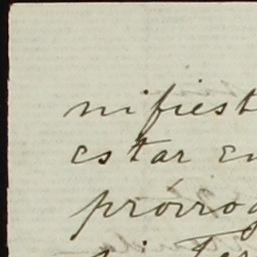 nifiest
estar en
prórrog